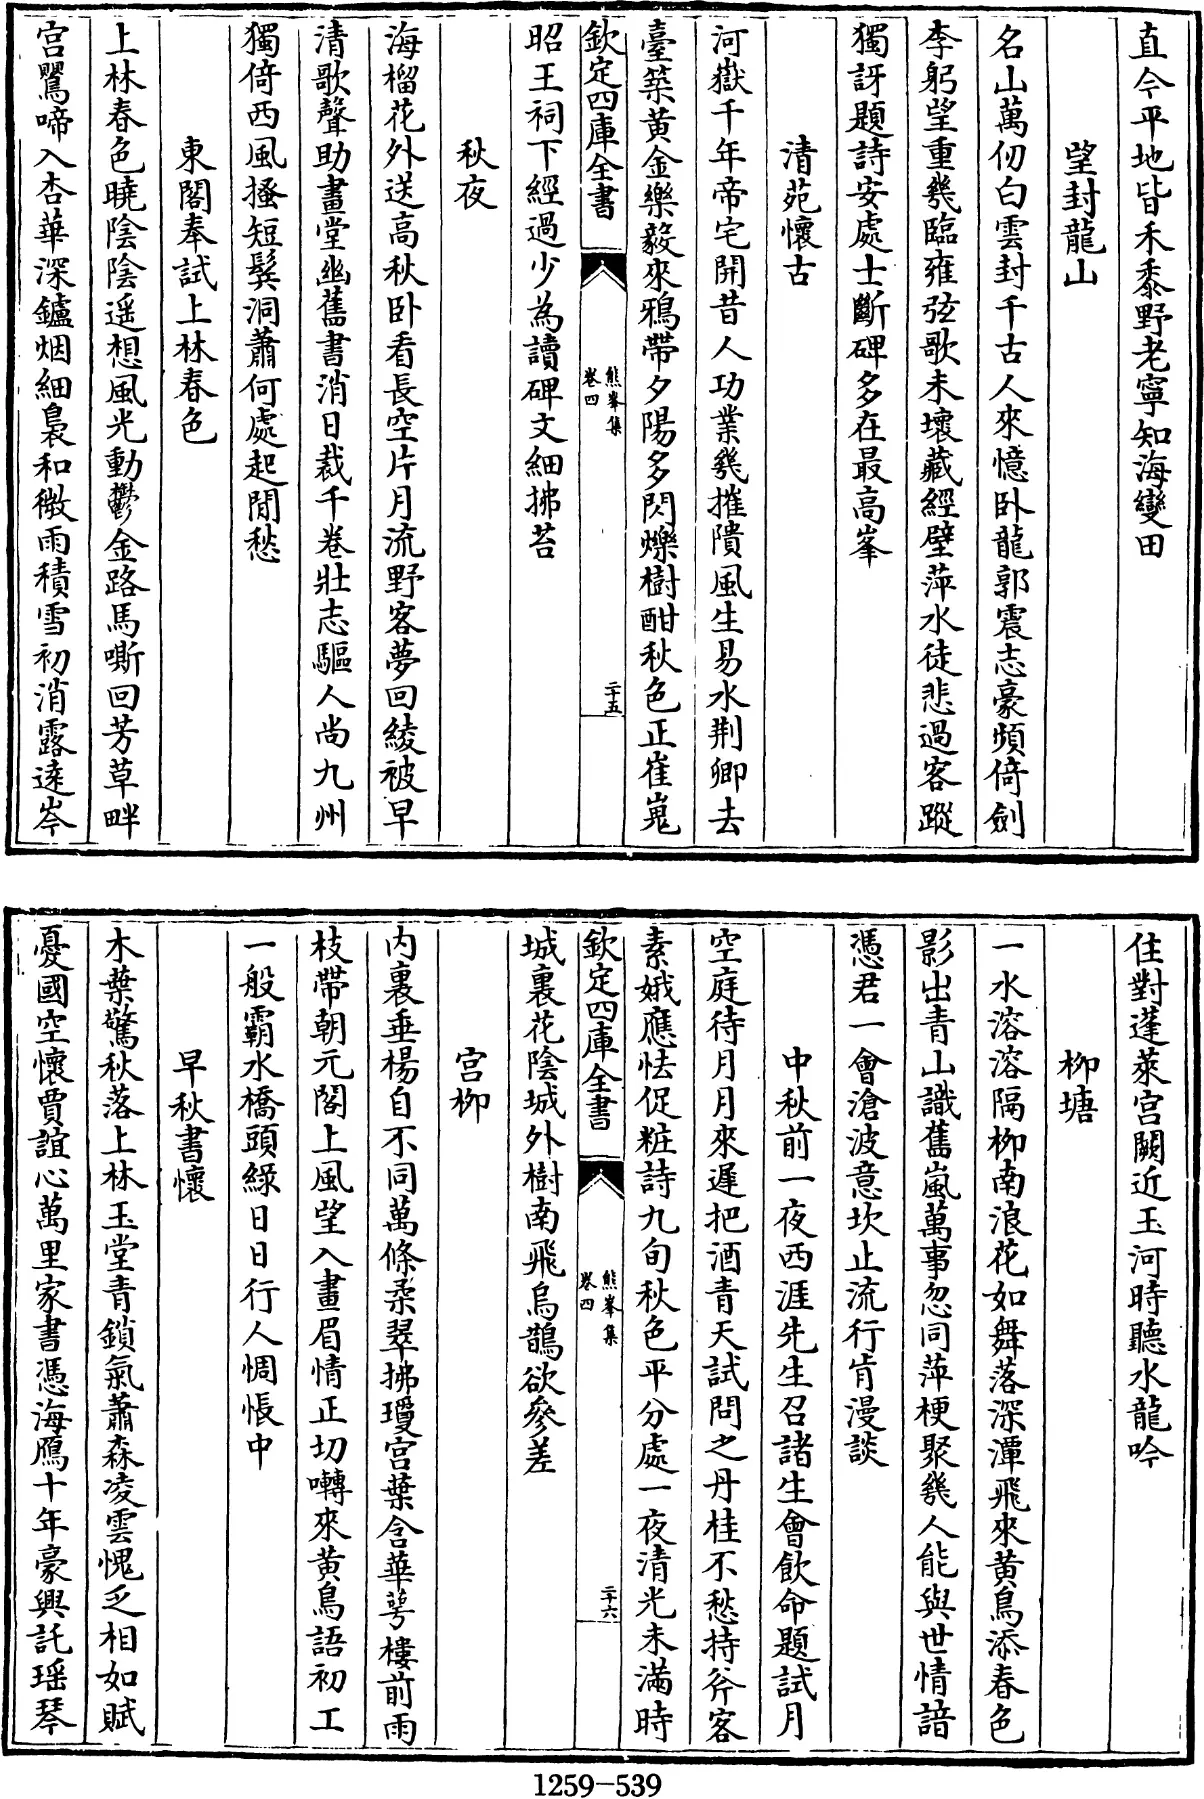 直今平地皆禾黍野老寧知海變田
望封龍山
名山萬仞白雲封千古人來憶卧龍郭震志豪頻倚劍
李躬望重幾臨雍弦歌未壞藏經壁萍水徒悲過客蹤
獨訝題詩安處士斷碑多在最高峯
清苑懷古
河嶽千年帝宅開昔人功業幾摧隤風生易水荆卿去
臺築黄金樂毅來鴉帶夕陽多閃爍樹酣秋色正崔嵬
欽定四庫全書
熊峯集
卷四
二十五
昭王祠下經過少為讀碑文細拂苔
秋夜
海榴花外送高秋卧看長空片月流野客夢回綾被早
清歌聲助畫堂幽舊書消日裁千卷壯志驅人尚九州
獨倚西風搔短鬂洞蕭何處起閒愁
東閣奉試上林春色
上林春色曉陰陰遥想風光動鬱金路馬嘶回芳草畔
宫鸎啼入杏華深鑪烟細裊和微雨積雪初消露逺岑
住對蓬萊宫闕近玉河時聽水龍吟
柳塘
一水溶溶隔柳南浪花如舞落深潭飛來黄鳥添春色
影出青山識舊嵐萬事忽同萍梗聚幾人能與世情諳
憑君一會滄波意坎止流行肯漫談
中秋前一夜西涯先生召諸生會飲命題試月
空庭待月月來遲把酒青天試問之丹桂不愁持斧客
素娥應怯促粧詩九旬秋色平分處一夜清光未滿時
欽定四庫全書
熊峯集
卷四
二十六
城裏花陰城外樹南飛烏鵲欲參差
宫柳
内裏垂楊自不同萬條柔翠拂瓊宫葉含華萼樓前雨
枝帶朝元閣上風望入畫眉情正切囀來黄鳥語初工
一般霸水橋頭綠日日行人惆悵中
早秋書懷
木葉驚秋落上林玉堂青鎖氣蕭森凌雲愧乏相如賦
憂國空懷賈誼心萬里家書憑海鴈十年豪興託瑶琴
1259-539